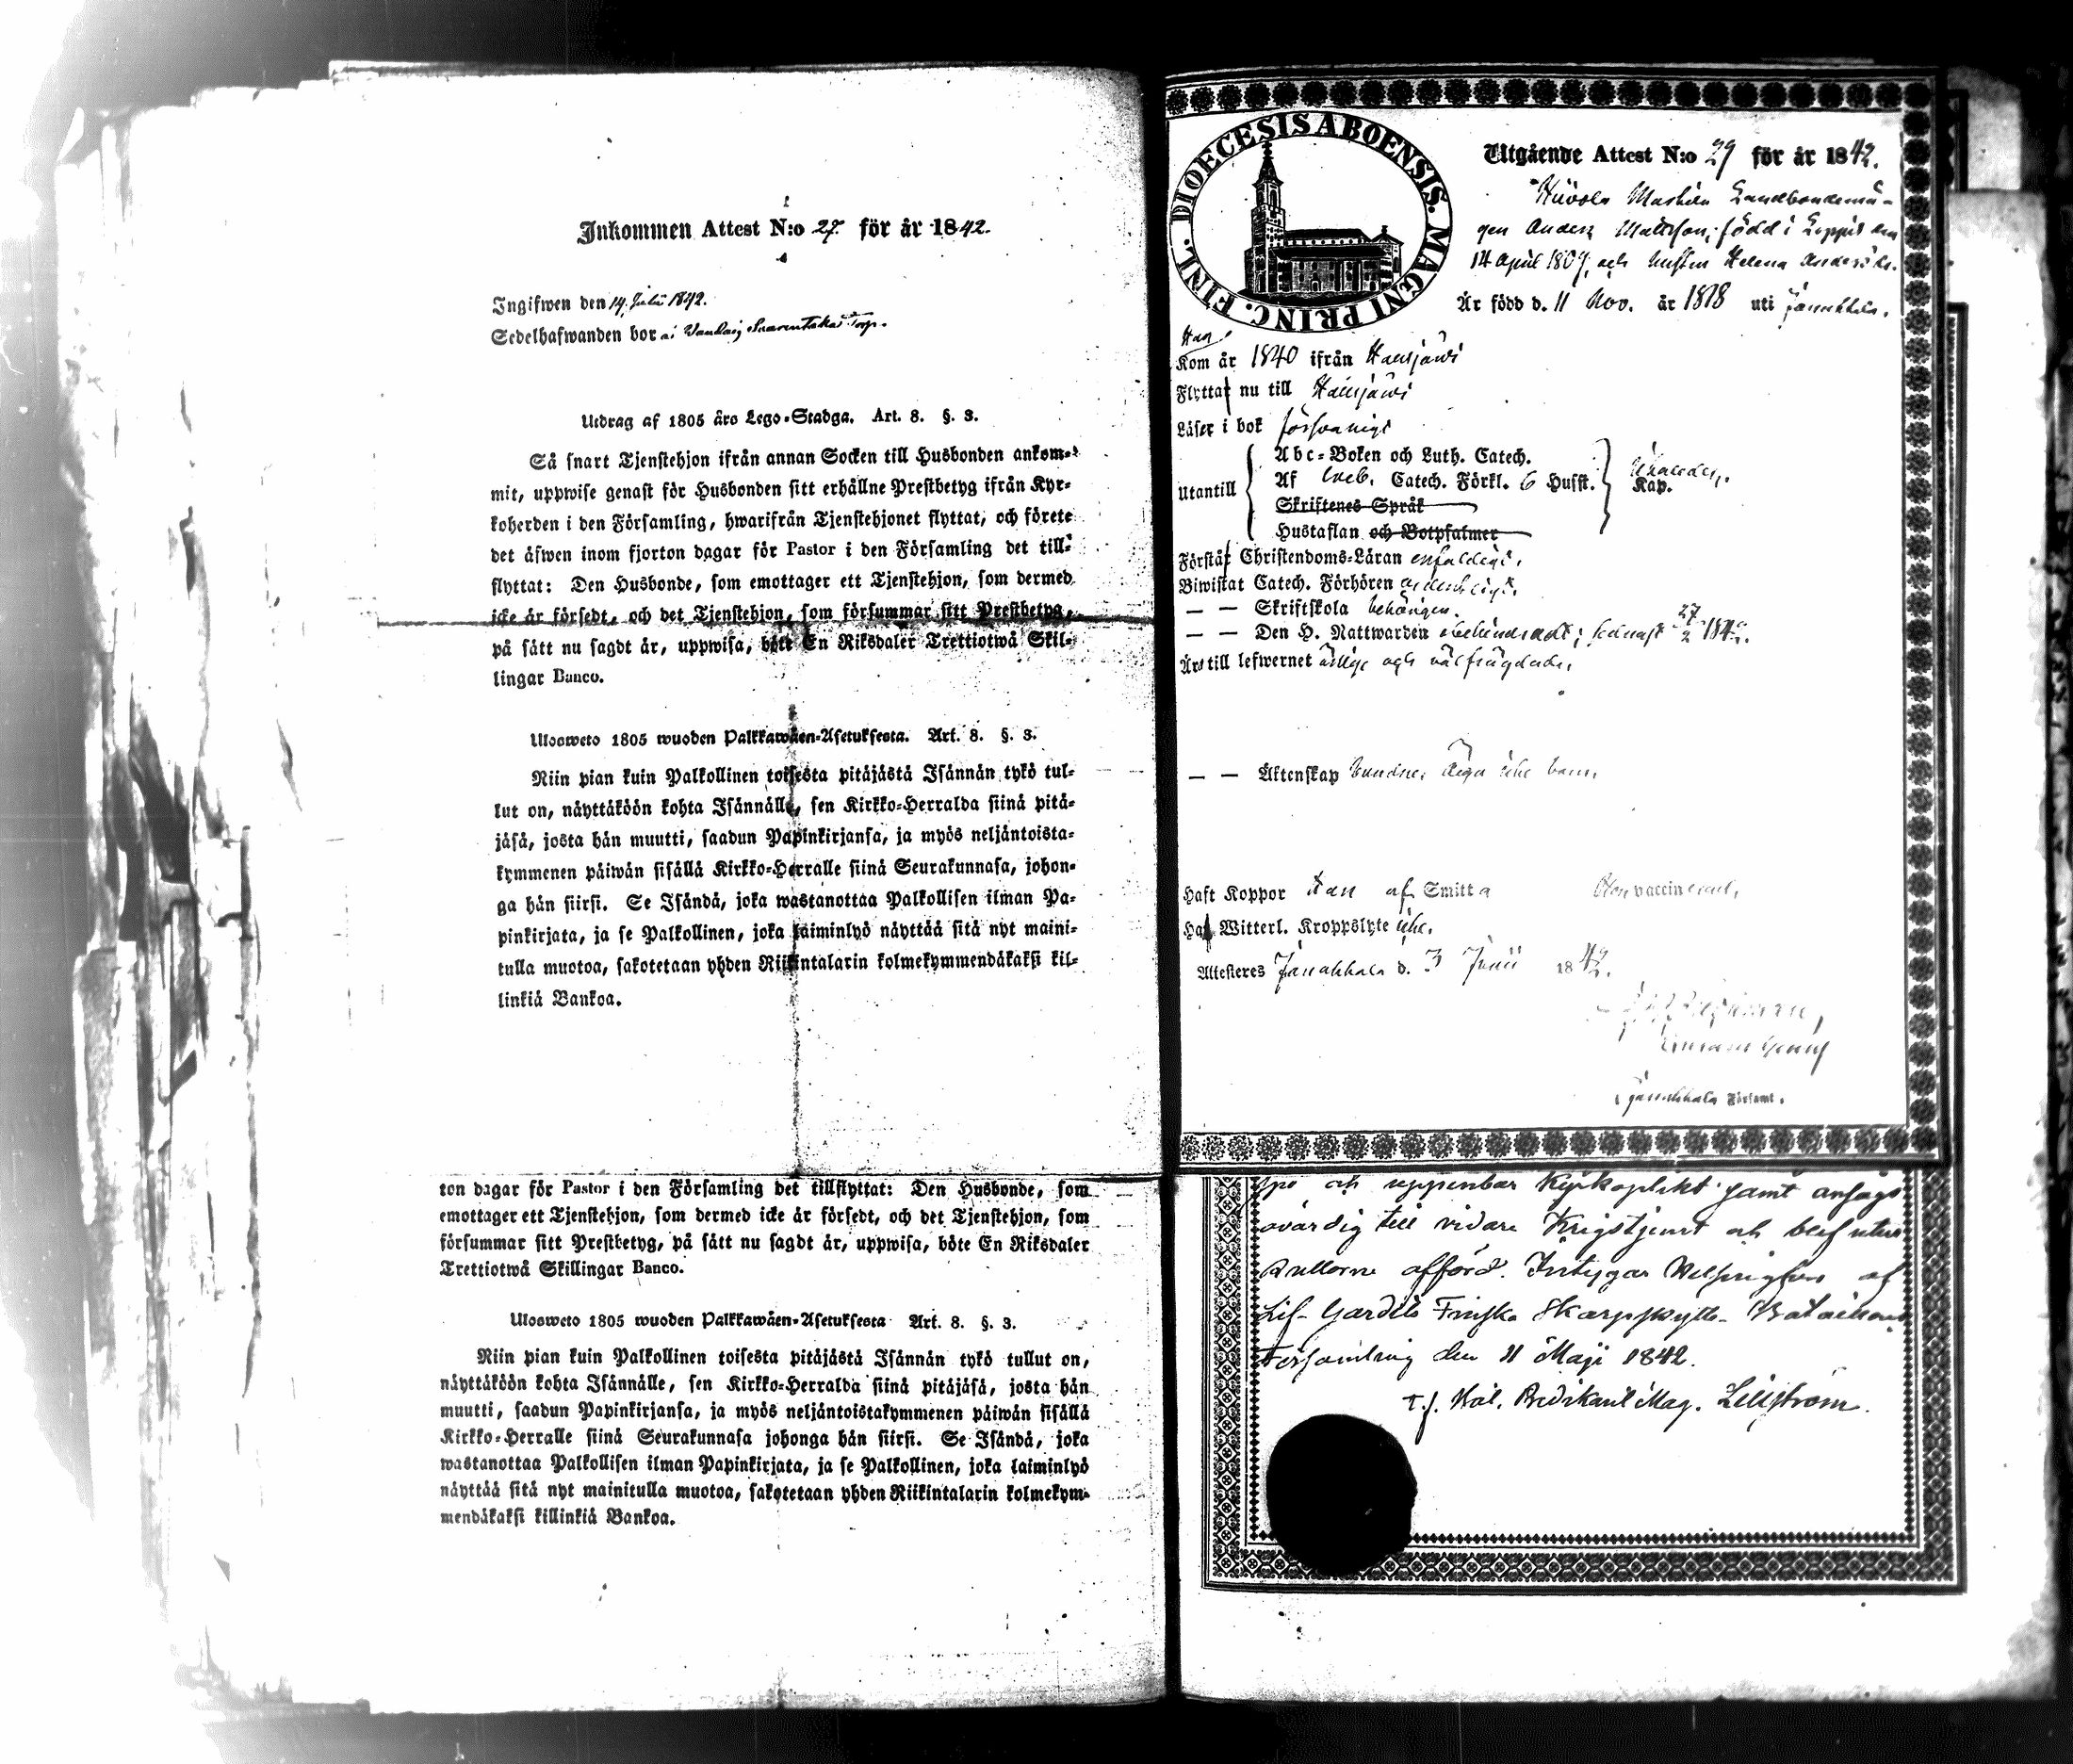 Inkommen Attest N:o 27 för år 1842.
Ingifwen den 14 Julii 1842.
Sedelhafwanden bor
Utdrag af 1805 års Lego-Stadga. Art. 8. §. 3.
Så snart Tjenstehjon ifrån annan Socken till Husbonden ankom-
mit, uppwise genast för Husbonden sitt erhållne Prestbetyg ifrån Kyr-
koherden i den Församling, hwarifrån Tjenstehjonet flyttat, och förete
det äfwen inom fjorton dagar för Pastor i den Församling det till-
flyttat: Den Husbonde, som emottager ett Tjenstehjon, som dermed
icke är försedt, och det Tjenstehjon, som försummar sitt Prestbetyg,
på sätt nu sagdt är, uppwisa, böte En Riksdaler Trettiotwå Skil-
lingar Banco.
Ulosweto 1805 wuoden Palkkawäen-Asetuksesta. Art. 8. §. 3.
Niin pian kuin Palkollinen toisesta pitäjästä Isännän tykö tul-
lut on, näyttäköön kohta Isännälle, sen Kirkko-Herralda siinä pitä-
jäsä, josta hän muutti, saadun Papinkirjansa, ja myös neljäntoista-
kymmenen päiwän sisällä Kirkko-Herralle siinä Seurakunnasa, johon-
ga hän siirsi. Se Isändä, joka wastanottaa Palkollisen ilman Pa-
pinkirjata, ja se Palkollinen, joka laiminlyö näyttää sitä nyt maini-
tulla muotoa, sakotetaan yhden Riikintalarin kolmekymmendäkaksi kil-
linkiä Bankoa.
ton dagar för Pastor i den Församling det tillflyttat: Den Husbonde, som
emottager ett Tjenstehjon, som dermed icke är försedt, och det Tjenstehjon, som
försummar sitt Prestbetyg, på sätt nu sagdt är, uppwisa, böte En Riksdaler
Trettiotwå Skillingar Banco.
Ulosweto 1805 wuoden Palkkawäen-Asetuksesta Art. 8. §. 3.
Niin pian kuin Palkollinen toisesta pitäjästä Isännän tykö tullut on,
näyttäköön kohta Isännälle, sen Kirkko-Herralda siinä pitäjäsä, josta hän
muutti, saadun Papinkirjansa, ja myös neljäntoistakymmenen päiwän sisällä
Kirkko-Herralle siinä Seurakunnasa johonga hän siirsi. Se Isändä, joka
wastanottaa Palkollisen ilman Papinkirjata, ja se Palkollinen, joka laiminlyö
näyttää sitä nyt mainitulla muotoa, sakotetaan yhden Riikintalarin kolmekym-
mendäkaksi killinkiä Bankoa.
DIOECESIS ABOENSIS. MAGNI PRINC. FINL.
Utgående Attest N:o 29 för år 1842.
Landbondemå-
gen Anders Mattsson, född i Loppis den
14 April 1809, och hustru Helena Andersdr.
Är född d. 11 Nov. år 1818 uti Janakkala.
Han
Kom år 1840 ifrån Hausjärvi
Flyttar nu till Hausjärvi
Läser i bok försvarligt
Utantill
Abc-Boken och Luth. Catech.
Af Sveb. Catech. Förkl. 6 Hufst. Kap.
Skriftenes Språk
Hustaflan och Botpsalmer
Förstår Christendoms-Läran enfaldigt.
Biwistat Catech. Förhören ordentligt.
— — Skriftskola behörigen.
— — Den H. Nattwarden obehindradt; sednast 27/2 1842.
Äro till lefwernet ärlige och välfrägdade.
— — Äktenskap bundne, äga icke barn.
Haft Koppor Han af Smitta Hon vaccinerad.
Haf Witterl. Kroppslyte icke.
Attesteres Janakkala d. 3 Junii 1842.
Janakkala Församl.
och uppenbar Kyrkoplikt samt ansågs
ovärdig till vidare Krigstjenst och blef utur
Rullorne afförd. Intygar Helsingfors af
Lif-Gardets Finska Skarpskytte-Bataillons
Församling den 11 Maji 1842.
T. f. Bat. Predikant Mag. Lillström.